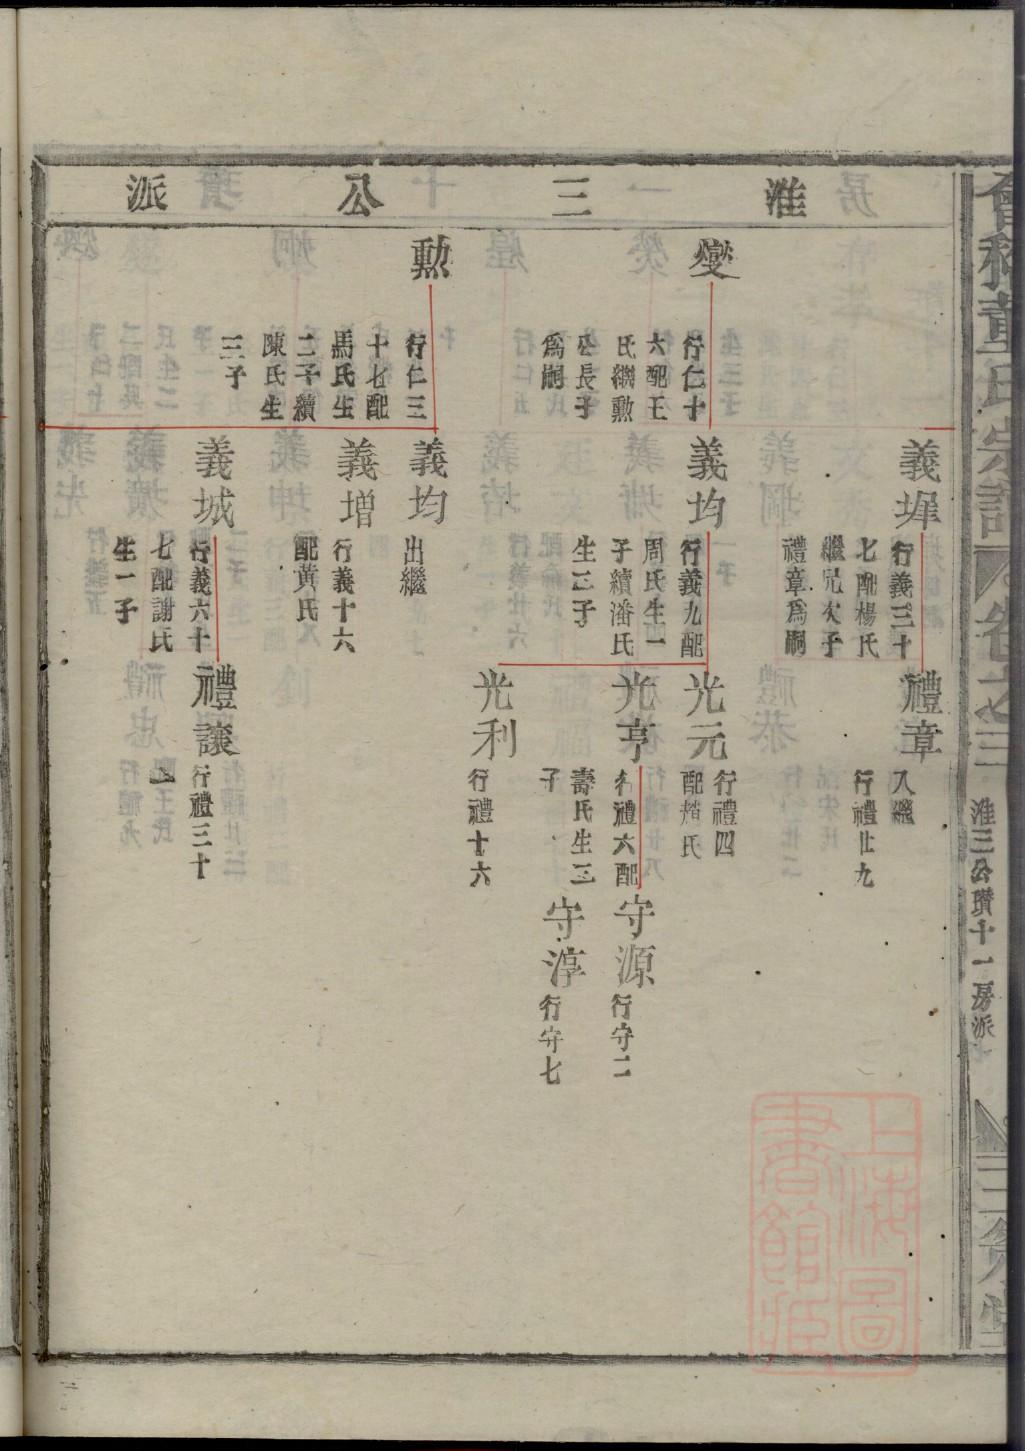 淮三公派
燮
行仁十
六配王
氏繼勲
公長子
為嗣
勲
行仁三
十七配
馬氏生
二子續
陳氏生
三子
義墀
行義三十
七配楊氏
繼兄次子
禮章為嗣
義均
行義九配
周氏生一
子續潘氏
生二子
義均
出繼
義增
行義十六
配黃氏
義城
行義六十
七配謝氏
生一子
禮章
入繼
行禮廿九
光元
行禮四
配趙氏
光亨
行禮六配
壽氏生二
子
光利
行禮十六
禮讓
行禮三十
二
守源
行守二
守淳
行守七
會稽董氏宗譜
卷之三
淮三公瓚十一房派
上海圖書館藏